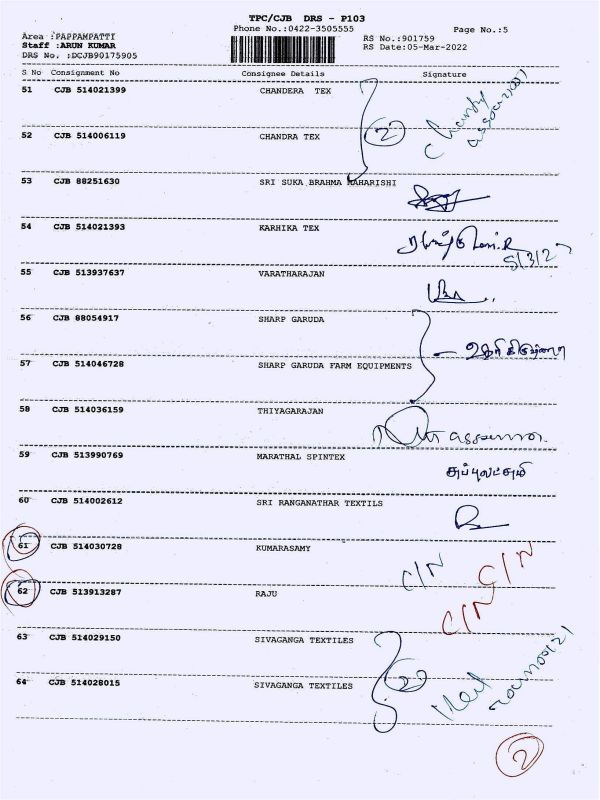 TPC/CJB DRS - P103
Area :PAPPAMPATTI
Phone No.:0422-3505555
Page No.:5
Staff :ARUN KUMAR
RS No.:901759
DRS No. :DCJB90175905
RS Date:05-Mar-2022
S No Consignment No Consignee Details Signature
51 CJB 514021399 CHANDERA TEX
2
52 CJB 514006119 CHANDRA TEX
53 CJB 88251630 SRI SUKA BRAHMA MAHARISHI
54 CJB 514021393 KARHIKA TEX
55 CJB 513937637 VARATHARAJAN
56 CJB 88054917 SHARP GARUDA
57 CJB 514046728 SHARP GARUDA FARM EQUIPMENTS
58 CJB 514036159 THIYAGARAJAN
59 CJB 513990769 MARATHAL SPINTEX
சுப்புலட்சுமி
60 CJB 514002612 SRI RANGANATHAR TEXTILS
61 CJB 514030728 KUMARASAMY C/N C/N
62 CJB 513913287 RAJU C/N
63 CJB 514029150 SIVAGANGA TEXTILES
2
64 CJB 514028015 SIVAGANGA TEXTILES
2